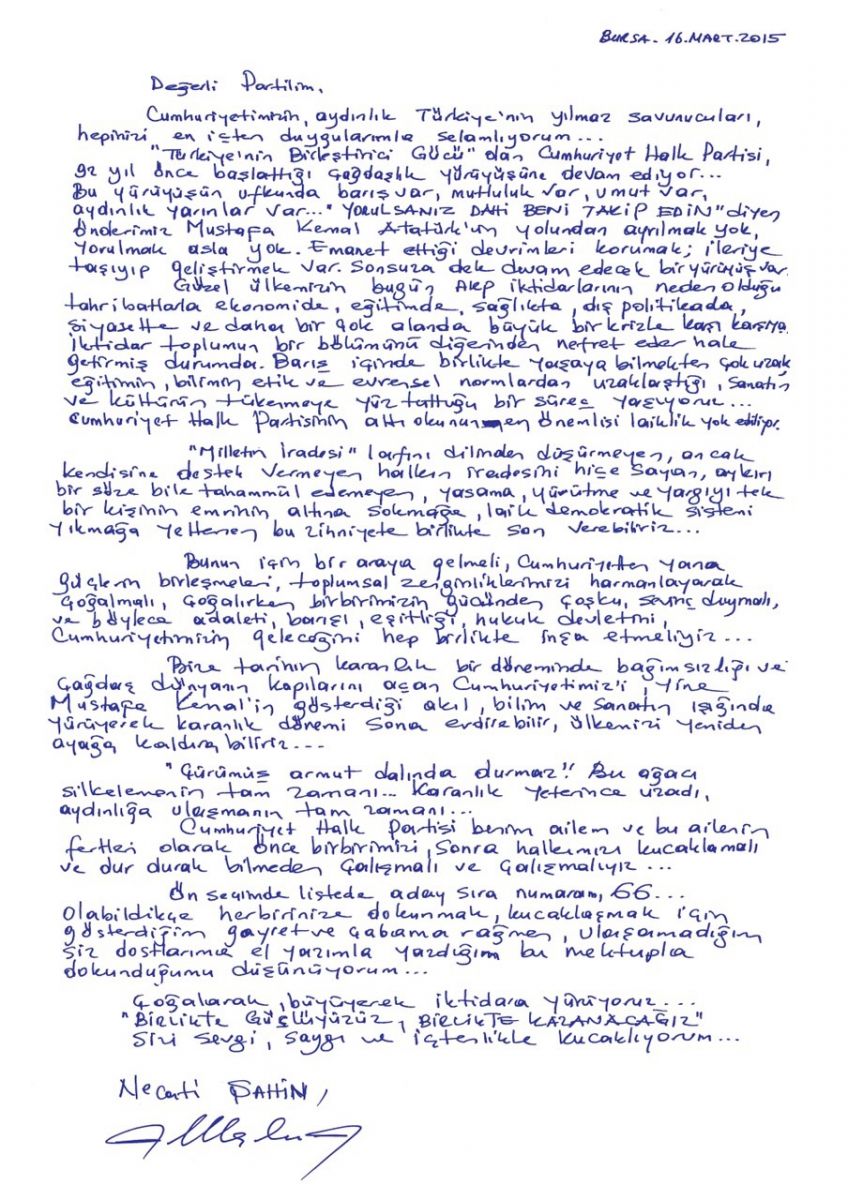 BURSA. 16.MART.2015
Değerli Partilim,
Cumhuriyetimizin, aydınlık Türkiye'nin yılmaz savunucuları,
hepinizi en içten duygularımla selamlıyorum...
"Türkiye'nin Birleştirici Gücü" dan Cumhuriyet Halk Partisi,
92 yıl önce başlattığı çağdaşlık yürüyüşüne devam ediyor...
Bu yürüyüşün ufkunda barış var, mutluluk var, umut var,
aydınlık yarınlar var..." YORULSANIZ DAHİ BENİ TAKİP EDİN" diyen
Önderimiz Mustafa Kemal Atatürk'ün yolundan ayrılmak yok,
yorulmak asla yok. Emanet ettiği devrimleri korumak; ileriye
taşıyıp geliştirmek var. Sonsuza dek devam edecek bir yürüyüş var.
Güzel ülkemizin bugün AKP iktidarlarının neden olduğu
tahribatlarla ekonomide, eğitimde, sağlıkta, dış politikada,
siyasette ve daha bir çok alanda büyük bir krizle karşı karşıya.
İktidar toplumun bir bölümünü diğerinden nefret eder hale
getirmiş durumda. Barış içinde birlikte yaşaya bilmekten çok uzak
eğitimin, bilimin etik ve evrensel normlardan uzaklaştığı, sanatın
ve kültürün tükenmeye yüz tuttuğu bir süreç yaşıyoruz...
Cumhuriyet Halk Partisinin altı okunun en önemlisi laiklik yok ediliyor.
"Milletin İradesi" lafını dilinden düşürmeyen, ancak
kendisine destek vermeyen halkın iradesini hiçe sayan, aykırı
bir söze bile tahammül edemeyen, yasama, yürütme ve yargıyı tek
bir kişinin emrinin altına sokmağa, laik demokratik sistemi
yıkmağa yeltenen bu zihniyete birlikte son verebiliriz...
Bunun için bir araya gelmeli, Cumhuriyetten yana
güçlerin birleşmeleri, toplumsal zenginliklerimizi harmanlayarak
çoğalmalı, çoğalırken birbirimizin gücünden çoşku, sevinç duymalı,
ve böylece adaleti, barışı, eşitliği, hukuk devletini,
Cumhuriyetimizin geleceğini hep birlikte inşa etmeliyiz...
Bize tarihin karanlık bir döneminde bağımsızlığı ve
çağdaş dünyanın kapılarını açan Cumhuriyetimiz'i, yine
Mustafa Kemal'in gösterdiği akıl, bilim ve sanatın ışığında
yürüyerek karanlık dönemi sona erdirebilir, ülkemizi yeniden
ayağa kaldıra biliriz...
"Çürümüş armut dalında durmaz!! Bu ağacı
silkelemenin tam zamanı... Karanlık yeterince uzadı,
aydınlığa ulaşmanın tam zamanı...
Cumhuriyet Halk Partisi benim ailem ve bu ailenin
fertleri olarak önce birbirimizi, sonra halkımızı kucaklamalı
ve dur durak bilmeden çalışmalı ve çalışmalıyız...
Ön seçimde listede aday sıra numaram, 66...
Olabildikçe herbirinize dokunmak, kucaklaşmak için
gösterdiğim gayret ve çabama rağmen, ulaşamadığım
siz dostlarıma el yazımla yazdığım bu mektupla
dokunduğumu düşünüyorum...
Çoğalarak, büyüyerek iktidara yürüyoruz...
"BİRLİKTE GÜÇLÜYÜZÜZ, BİRLİKTE KAZANACAĞIZ"
Sizi sevgi, saygı ve içtenlikle kucaklıyorum...
Necati ŞAHİN,